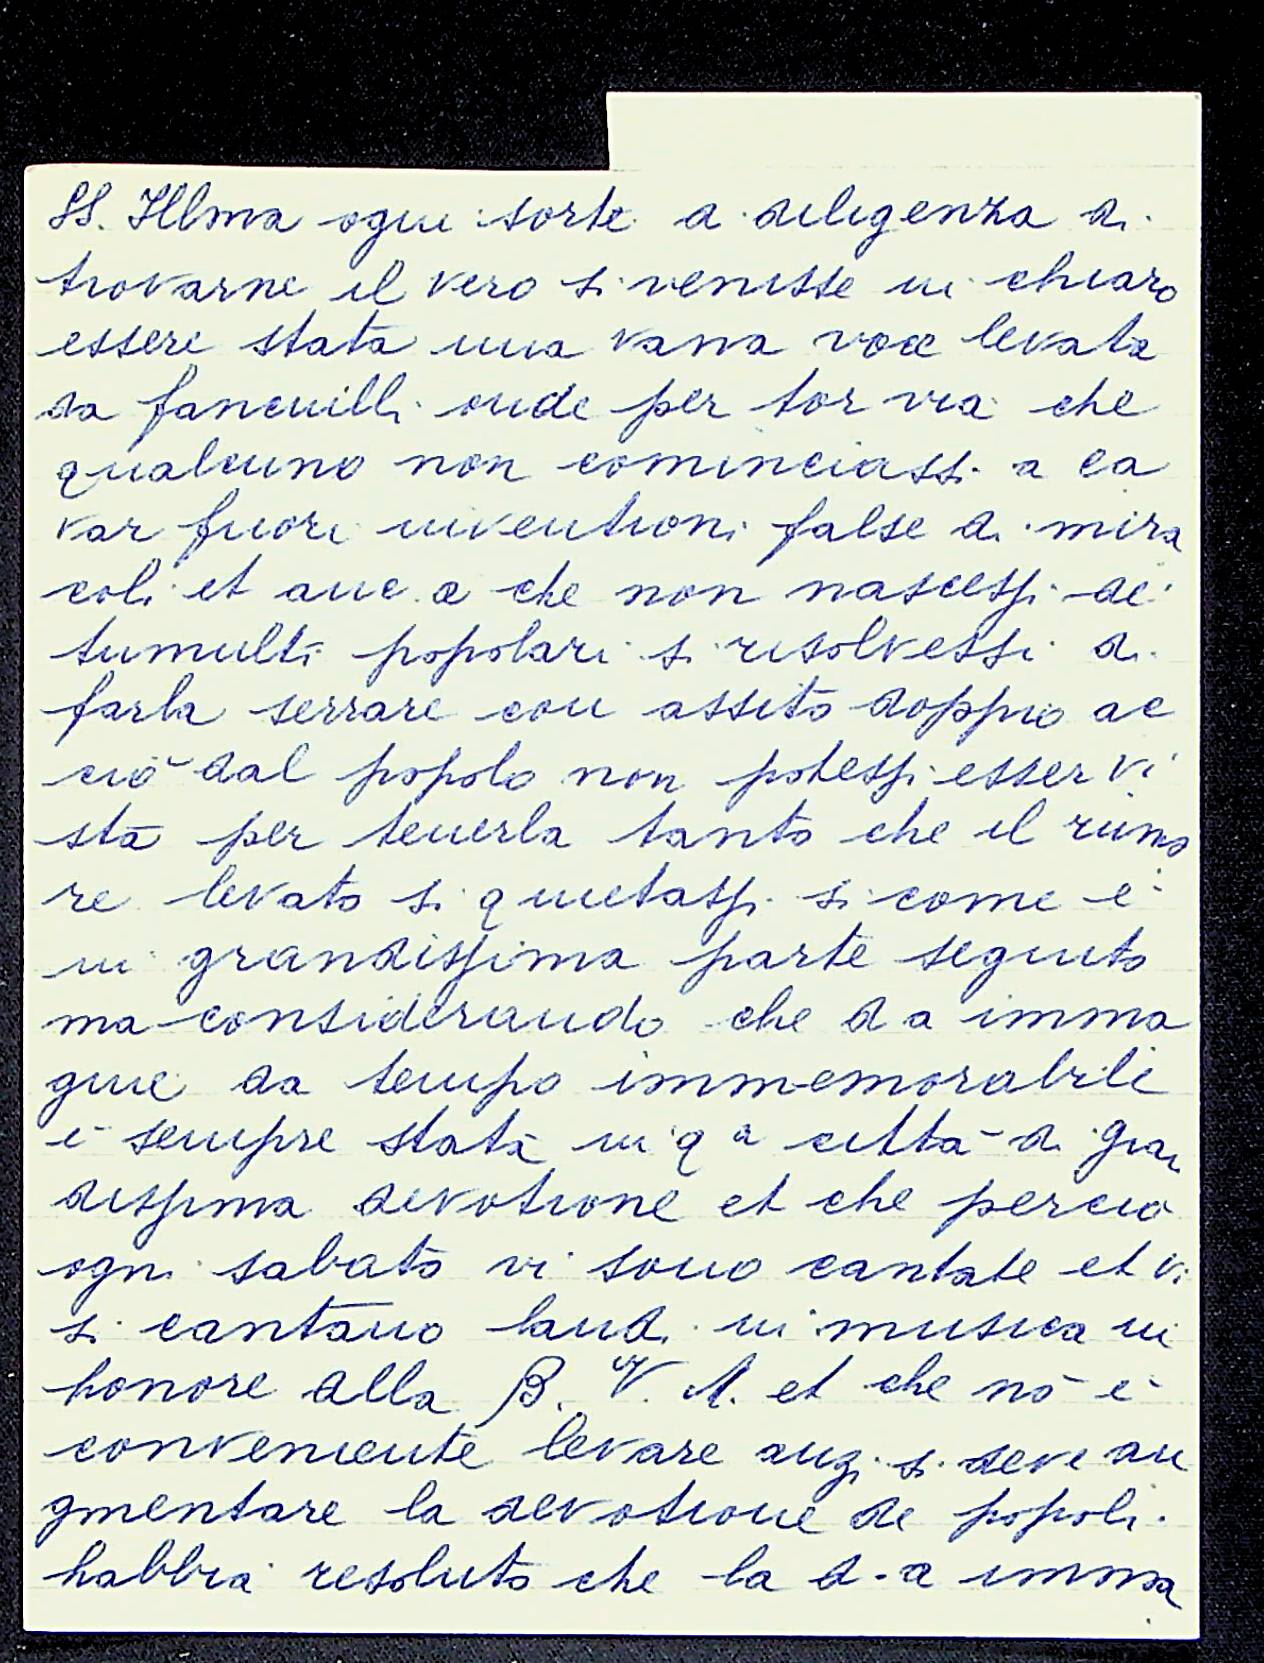 SS. Illma ogni sorte a diligenza di
trovarne il vero si venisse in chiaro
essere stata una vana voce levata
da fanciulli onde per tor via che
qualcuno non cominciassi a ca
var fuori inventioni false di mira
coli et anc a che non nascessi de
tumulti popolari si risolvessi di
farla serrare con assito doppio ac
ciò dal popolo non potessi esser vi
sta per tenerla tanto che il rumo
re levato si quietassi si come è
in grandissima parte seguito
ma considerando che d a imma
gine da tempo immemorabile
è sempre stata in q a città di gran
dissima devotione et che perciò
ogni sabato vi sono cantate et vi
si cantano laudi in musica in
honore alla B. V. M. et che nō è
conveniente levare anzi si deve au
gmentare la devotione de popoli
habbia resoluto che la d.a imma